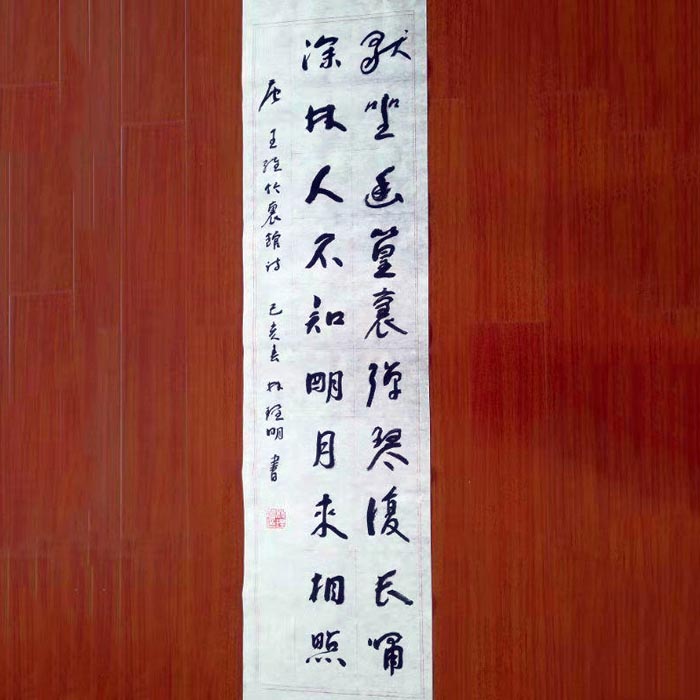 独坐幽篁裏弹琴復长嘯
深林人不知明月来相照
唐 王维竹裏館诗 己亥春 林 明 書